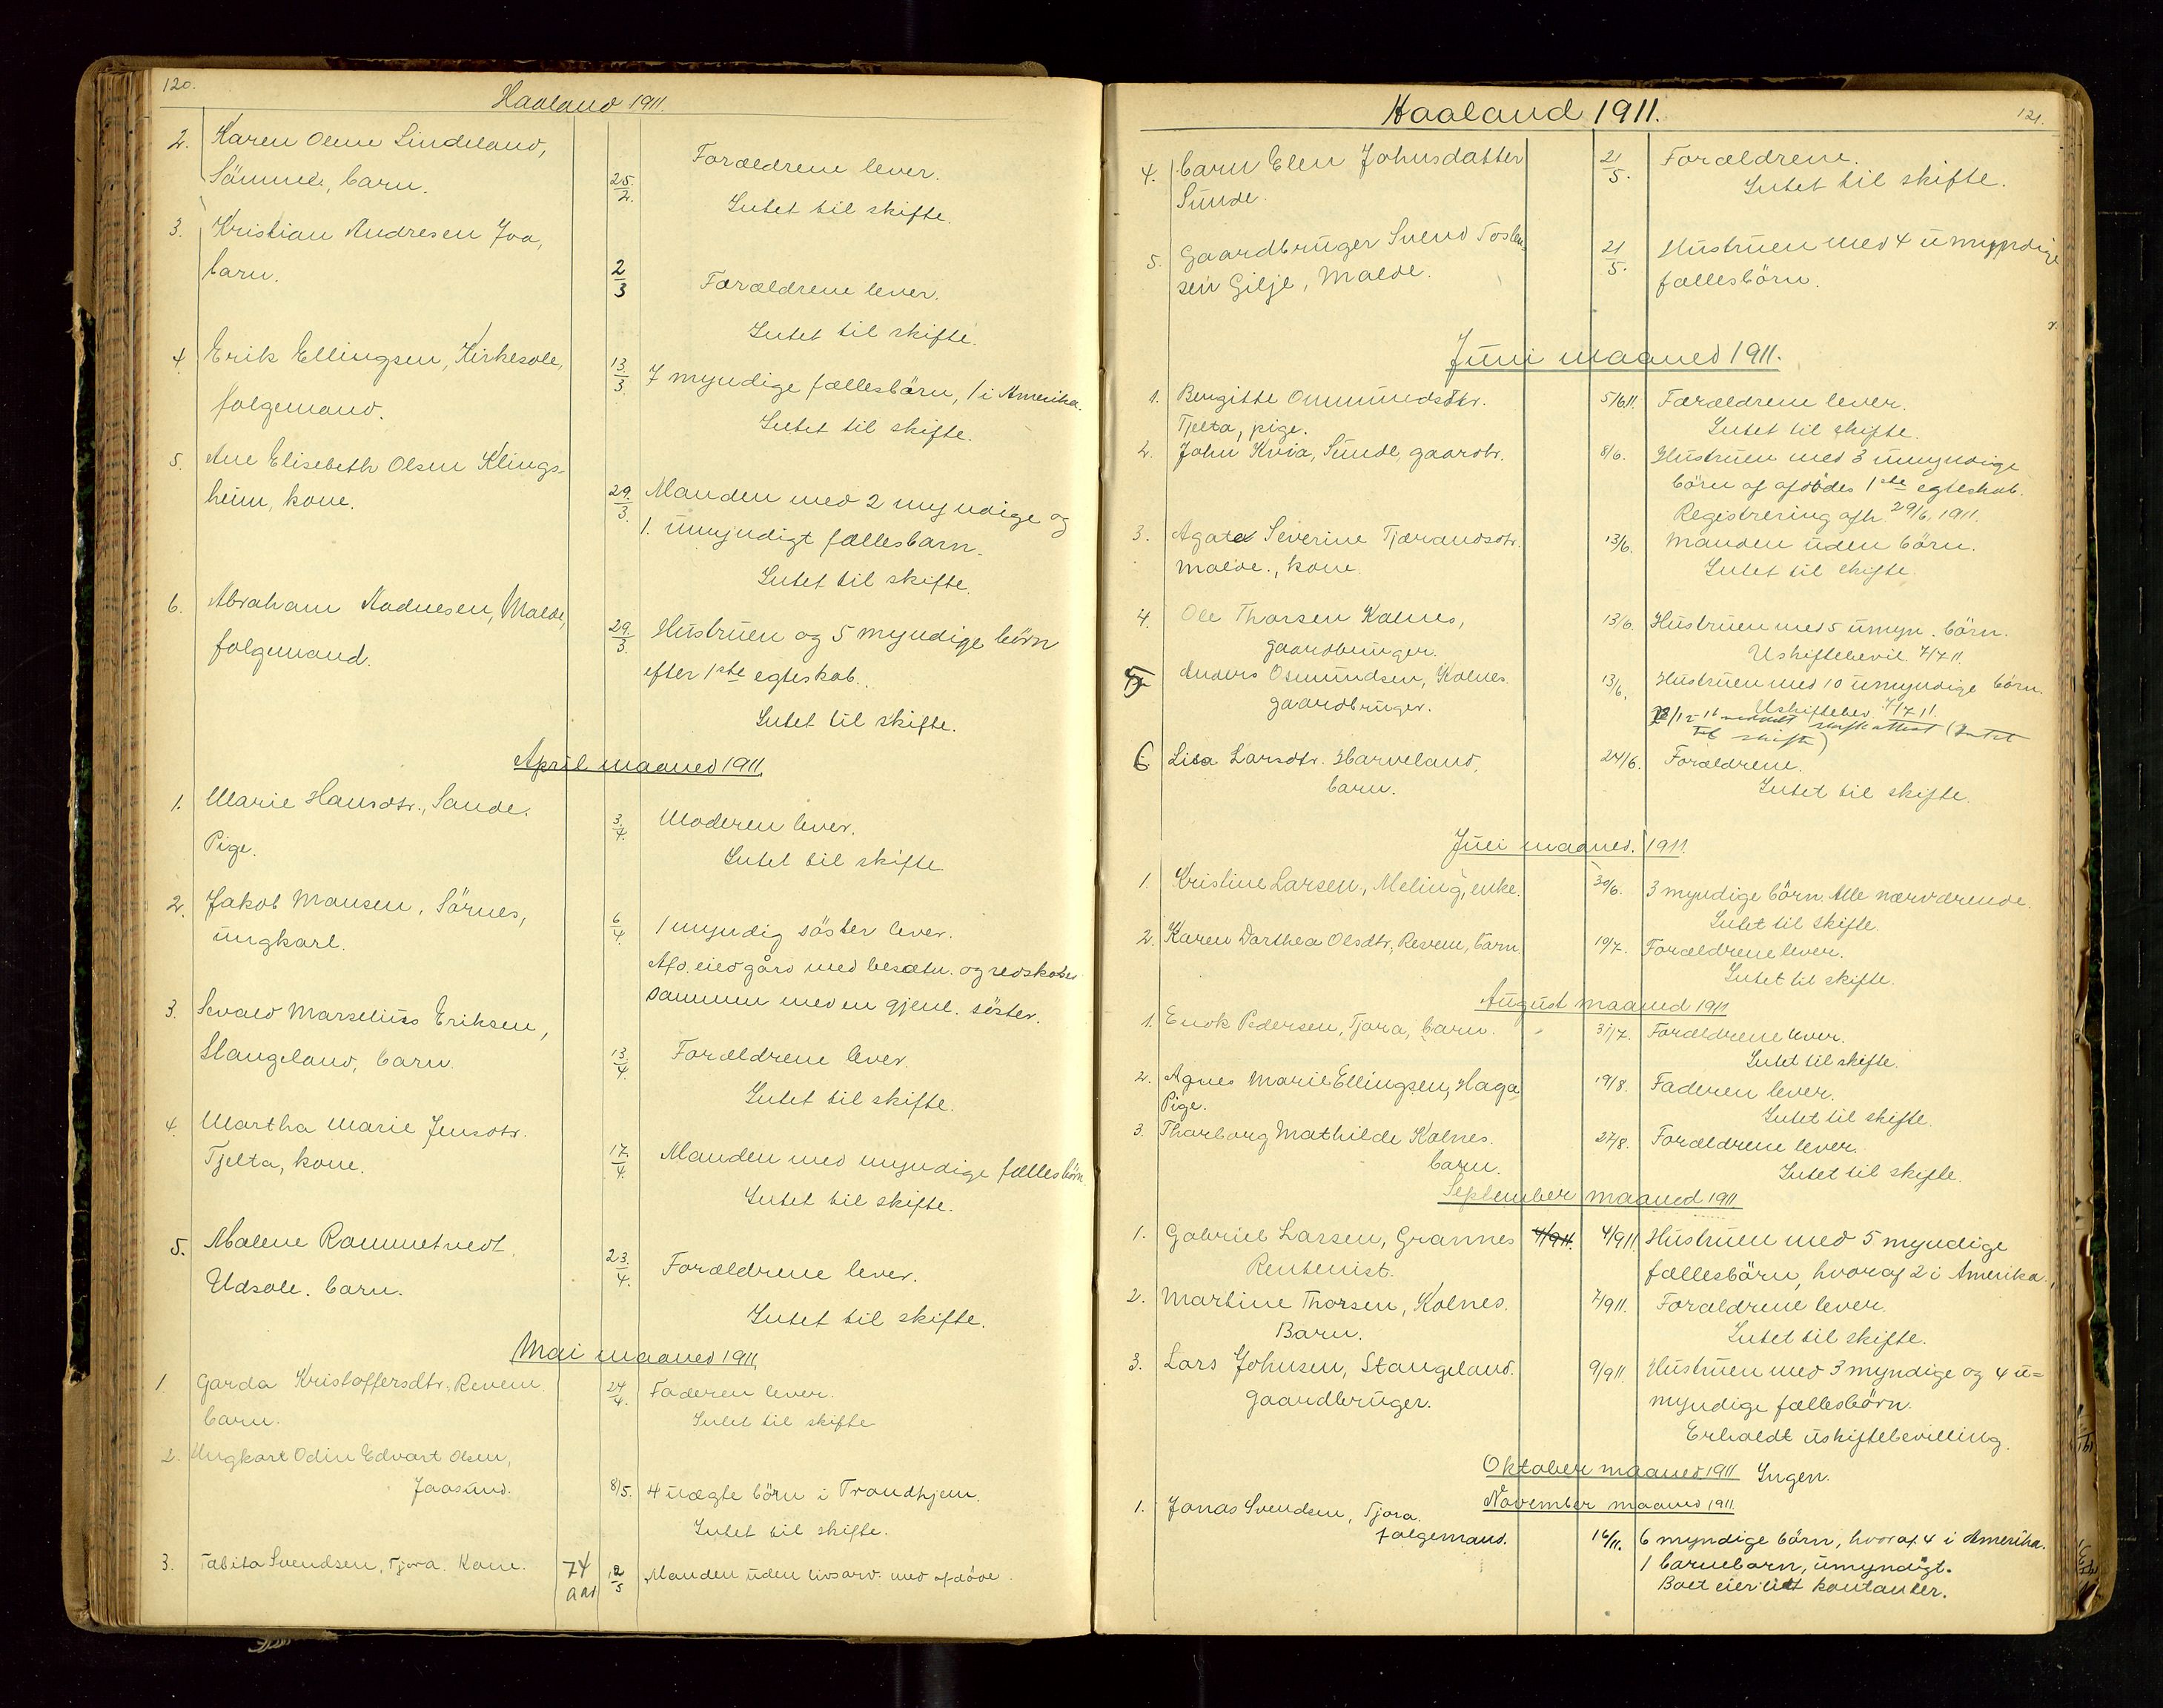 120.
Haaland 1911.
2. Karen Oline Lindeland,
Sömmed, barn.
25./2. Forældrene lever.
Intet til skifte.
3. Kristian Andresen Joa,
barn.
2/3 Forældrene lever.
Intet til skifte.
4. Erik Ellingsen, Kirkesole,
folgemand.
13./3. 7 myndige fællesbörn, 1 i Amerika.
Intet til skifte.
5. Ane Elisebeth Olsen Klings-
heim, kone.
29./3. Manden med 2 myndige og
1. umyndigt fællesbarn.
Intet til skifte.
6. Abraham Aadnesen, Malde,
folgemand.
29./3. Hustruen og 5 myndige börn
efter 1ste egteskab.
Intet til skifte.
April maaned 1911.
1. Marie Hansdtr., Sande.
Pige.
3./4. Moderen lever.
Intet til skifte
2. Jakob Monsen, Sörnes,
ungkarl.
6/4. 1 myndig söster lever.
Afd. eied gård med besætn. og redskaber
sammen med en gjenl. söster.
3. Sevald Marselius Eriksen,
Stangeland, barn.
13/4. Forældrene lever.
Intet til skifte.
4. Martha Marie Jensdtr.
Tjelta, kone.
17./4. Manden med myndige fællesbörn.
Intet til skifte.
5. Malene Rommetvedt.
Udsole. barn.
23./4. Forældrene lever.
Intet til skifte.
Mai maaned 1911.
1. Garda Kristoffersdtr. Revem
barn.
24/4. Faderen lever.
Intet til skifte
2. Ungkarl Odin Edvart Olsen,
Jaasund.
8/5. 4 uægte börn i Trondhjem.
Intet til skifte.
3. Tabita Svendsen, Tjora. Kone.
74 aar
12/5 Manden uden livsarv. med afdöde.
Haaland 1911.
121.
4. barn Elen Johnsdatter
Sunde.
21/5. Forældrene.
Intet til skifte.
5. Gaardbruger Svend Tosten-
sen Gilje, Malde.
21/5. Hustruen med 4 umyndige
fællesbörn.
Juni maaned 1911.
1. Bergitte Ommundsdtr.
Tjelta, pige.
5/611. Forældrene lever.
Intet til skifte.
2. John Kvia, Sunde, gaardbr.
8/6. Hustruen med 3 umyndige
börn af afdödes 1ste egteskab.
Registrering afh. 29/6, 1911.
3. Agate Severine Tjærandsdtr.
Malde., kone.
13/6. Manden uden börn.
Intet til skifte.
4. Ole Thorsen Kolnes,
gaardbruger.
13/6. Hustruen med 5 umyn. börn.
Uskiftebevil. 7/7 11.
5 Anders Osmundsen, Kolnes.
gaardbruger.
13/6. Hustruen med 10 umyndige börn.
Uskiftebev. 7/7 11.
skifteattest (Intet
til skifte)
6 Lisa Larsdtr. Harveland,
barn.
24/6. Forældrene.
Intet til skifte.
Juli maaned. 1911.
1. Kristine Larsen, Meling, enke.
30/6. 3 myndige börn. Alle nærværende.
Intet til skifte.
2. Karen Dorthea Olsdtr, Revem, barn.
10/7. Forældrene lever.
Intet til skifte.
August maaned 1911
1. Enok Pedersen, Tjora, barn.
31/7. Forældrene lever.
Intet til skifte.
2. Agnes Marie Ellingsen, Haga
Pige.
19/8. Faderen lever.
Intet til skifte.
3. Thorborg Mathilde Kolnes.
barn.
27/8. Forældrene lever.
Intet til skifte.
September maaned 1911.
1. Gabriel Larsen, Grannes
Rentenist.
4/911. 4/911. Hustruen med 5 myndige
fællesbörn, hvoraf 2 i Amerika.
2. Martine Thorsen, Kolnes.
Barn.
7/911. Forældrene lever.
Intet til skifte.
3. Lars Johnsen, Stangeland.
gaardbruger.
9/911. Hustruen med 3 myndige og 4 u=
myndige fællesbörn.
Erholdt uskiftebevilling.
Oktober maaned 1911 Ingen.
November maaned 1911.
1. Jonas Svendsen, Tjora.
folgemand.
16/11. 6 myndige börn, hvoraf 4 i Amerika.
1 barnebarn, umyndigt.
Boet eier lidt kontanter.